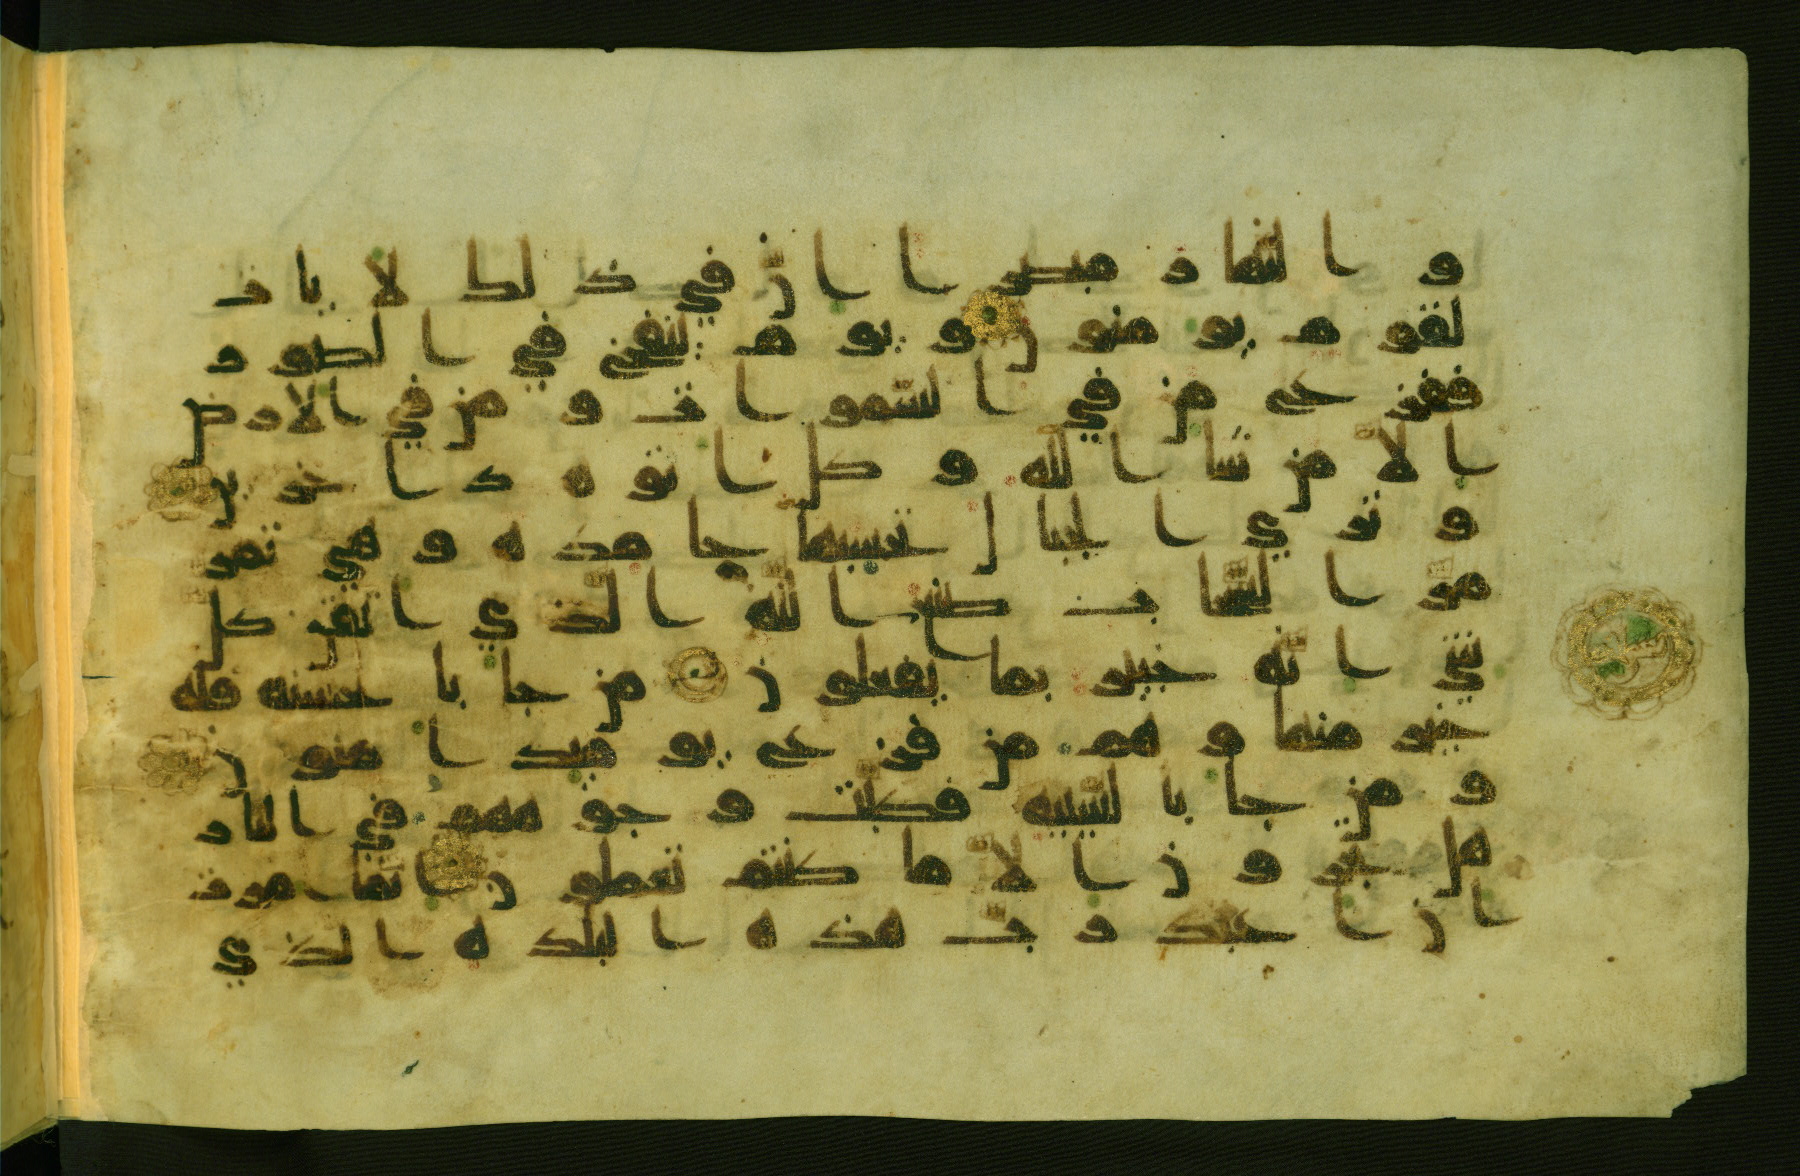 و ا لنها ر مبصر ا ا ن في ذ لك لا يا ت
لقو م يو منو ن و يو م ينفخ في ا لصو ر
ففز ع من في ا لسمو ا ت و من في ا لا رض
ا لا من شا ا لله و كل ا تو ه د ا خر ين
و تر ي ا لجبا ل تحسبها جا مد ه و هي تمر
مر ا لسحا ب صنع ا لله ا لذ ي ا تقن كل
شي ا نه خبير بما يفعلو ن من جا با لحسنه فله
خير منها و هم من فز ع يو ميذ ا منو ن
و من جا با لسييه فكبت و جو ههم في ا لنا ر
هل تجز و ن ا لا ما كنتم تعملو ن ا نما ا مر ت
ا ن ا عبد ر ب هذ ه ا لبلد ه ا لذ ي